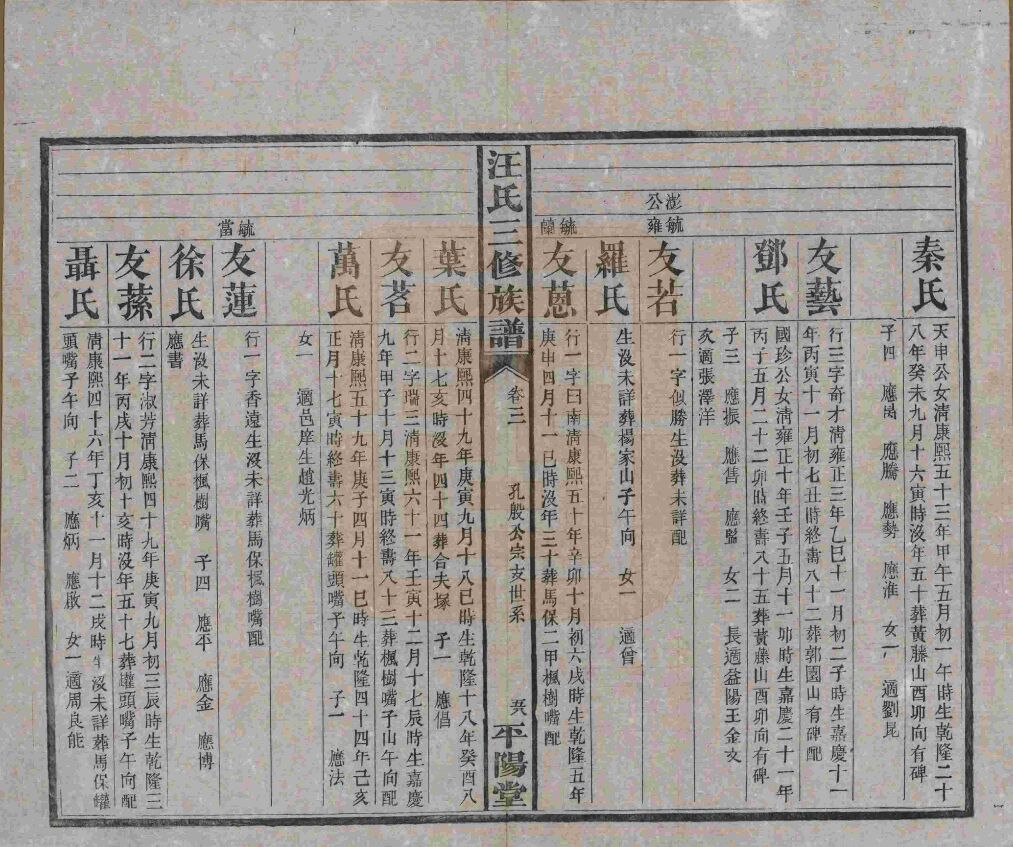 秦氏
天申公女清康熙五十三年甲午五月初一午時生乾隆二十
八年癸未九月十六寅時沒年五十葬黃藤山酉卯向有碑
子四　應岗　應騰　應勢　應淮　女一　適劉昆
友藝
行三字奇才清雍正三年乙巳十一月初二子時生嘉慶十一
年丙寅十一月初七丑時終壽八十二葬郭園山有碑配
鄧氏
國珍公女清雍正十年壬子五月十一卯時生嘉慶二十一年
丙子五月二十二卯時終壽八十五葬黃藤山酉卯向有碑
子三　應振　應售　應監　女二　長適益陽王金友
次適張澤洋
澎公
毓雍
友若
行一字似勝生沒葬未詳配
羅氏
生沒未詳葬楊家山子午向　女一　適曾
毓蘭
友蒽
行一字曰南清康熙五十年辛卯十月初六戌時生乾隆五年
庚申四月十一巳時沒年三十葬馬保二甲楓樹嘴配
汪氏三修族譜
卷二
孔殷公宗支世系
平陽堂
葉氏
清康熙四十九年庚寅九月十八巳時生乾隆十八年癸酉八
月十七亥時沒年四十四葬合夫塚　子一　應倡
友茗
行二字瑞三清康熙六十一年壬寅十二月十七辰時生嘉慶
九年甲子十月十三寅時終壽八十三葬楓樹嘴子山午向配
萬氏
清康熙五十九年庚子四月十一巳時生乾隆四十四年己亥
正月十七寅時終壽六十葬罐頭嘴子午向　子一　應法
女一　適邑庠生趙光炳
毓當
友蓮
行一字香遠生沒未詳葬馬保楓樹嘴配
徐氏
生沒未詳葬馬保楓樹嘴　子四　應平　應金　應博
應書
友蓀
行二字淑芳清康熙四十九年庚寅九月初三辰時生乾隆三
十一年丙戌十月初十亥時沒年五十七葬罐頭嘴子午向配
聶氏
清康熙四十六年丁亥十一月十二戌時生沒未詳葬馬保罐
頭嘴子午向　子二　應炳　應啟　女一適周良能